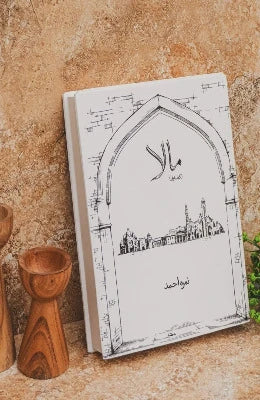 مالا
نمرہ احمد